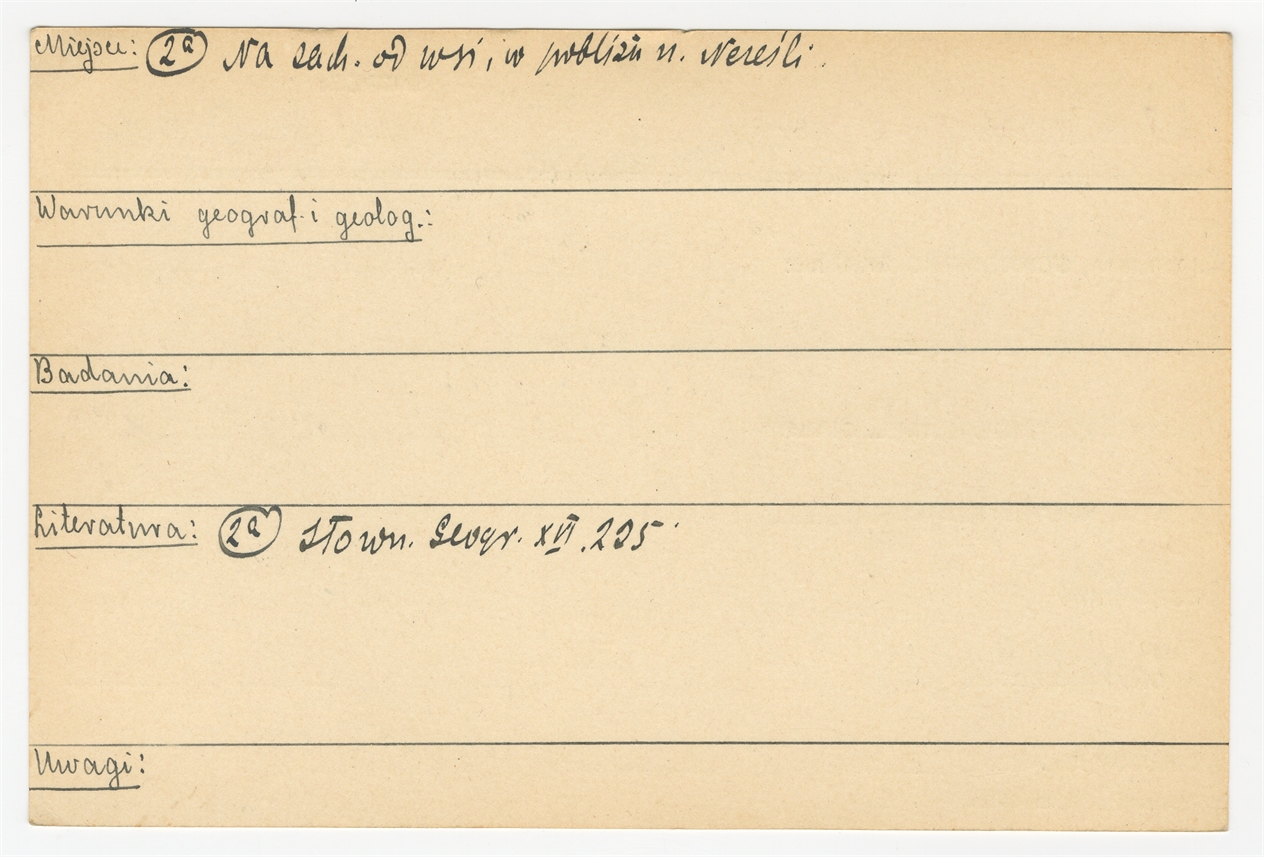 Miejsce: 2a Na zach. od wsi, w pobliżu rz. Nereśli.
Warunki geograf. i geolog.:
Badania:
Literatura: 2a Słown. Geogr. XVI. 225
Uwagi: